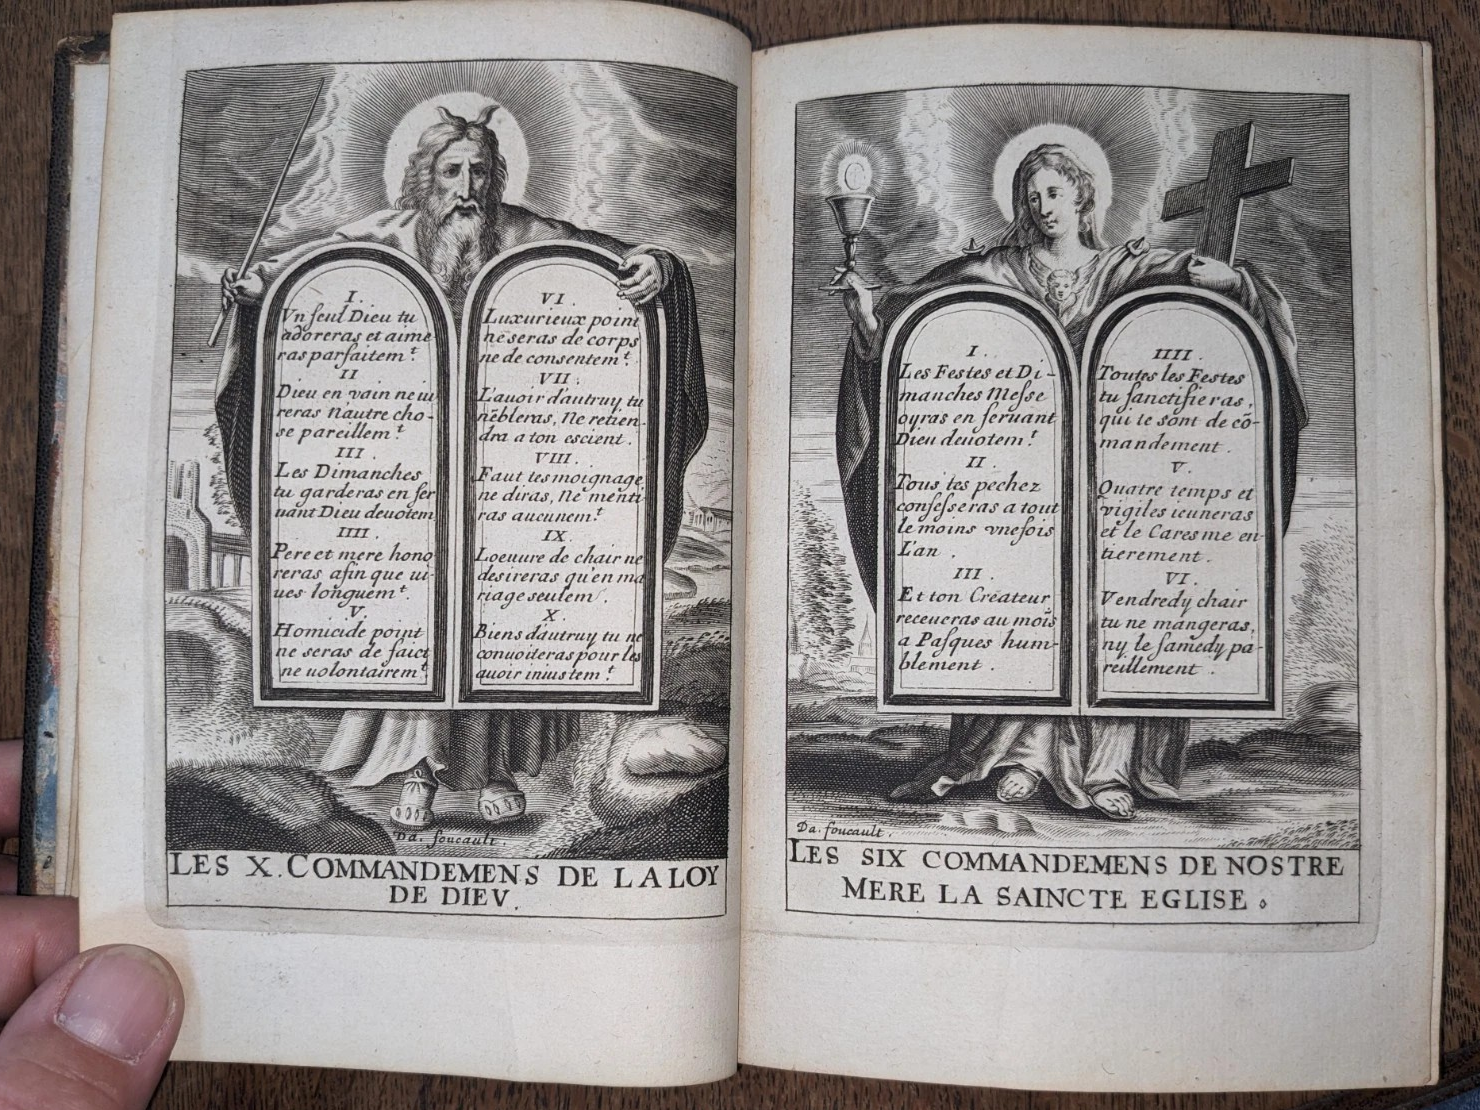 I.
Vn seul Dieu tu
adoreras et aime-
ras parfaitem.t
II
Dieu en vain ne iu
reras n'autre cho-
se pareillem.t
III.
Les Dimanches
tu garderas en ser
uant Dieu deuotem
IIII.
Pere et mere hono
reras afin que ui-
ues longuem.t
V.
Homicide point
ne seras de faict
ne uolontairem.t
VI.
Luxurieux point
ne seras de corps
ne de consentem.t
VII.
L'auoir d'autruy tu
nēbleras, Ne retien-
dra a ton escient.
VIII.
Faut tesmoignage
ne diras, Ne menti-
ras aucunem.t
IX.
Loeuure de chair ne
desireras qu'en ma
riage seulem.
X.
Biens d'autruy tu ne
conuoiteras pour les
auoir iniustem.t
Da. foucault.
LES X. COMMANDEMENS DE LA LOY
DE DIEV.
I.
Les Festes et Di-
manches Messe
oyras en seruant
Dieu deuotem.t
II.
Tous tes pechez
confesseras a tout
le moins vne fois
L'an.
III.
Et ton Créateur
receueras au mois
a Pasques hum-
blement.
IIII.
Toutes les Festes
tu sanctifieras,
qui te sont de cō-
mandement.
V.
Quatre temps et
vigiles ieuneras
et le Caresme en-
tierement.
VI.
Vendredy chair
tu ne mangeras,
ny le samedy pa-
reillement.
Da. foucault.
LES SIX COMMANDEMENS DE NOSTRE
MERE LA SAINCTE EGLISE.